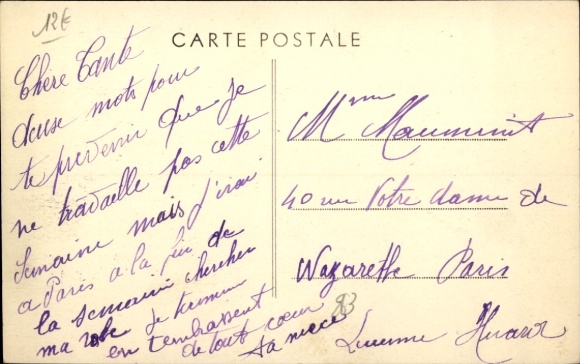 12€
CARTE POSTALE
Chère Tante
deuse mots pour
te prevenir que je
ne travaelle pas cette
Semaine mais j'irai
a Paris a la fin de
la semaine chercher
ma robe je termine
en t'embrassent
de tout cœur
ta niece
83
Mme
40 rue Notre dame de
Nazarette Paris